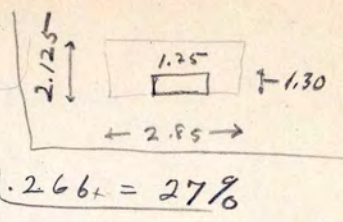 2.125
1.25
1.30
2.85
.266+ = 27%